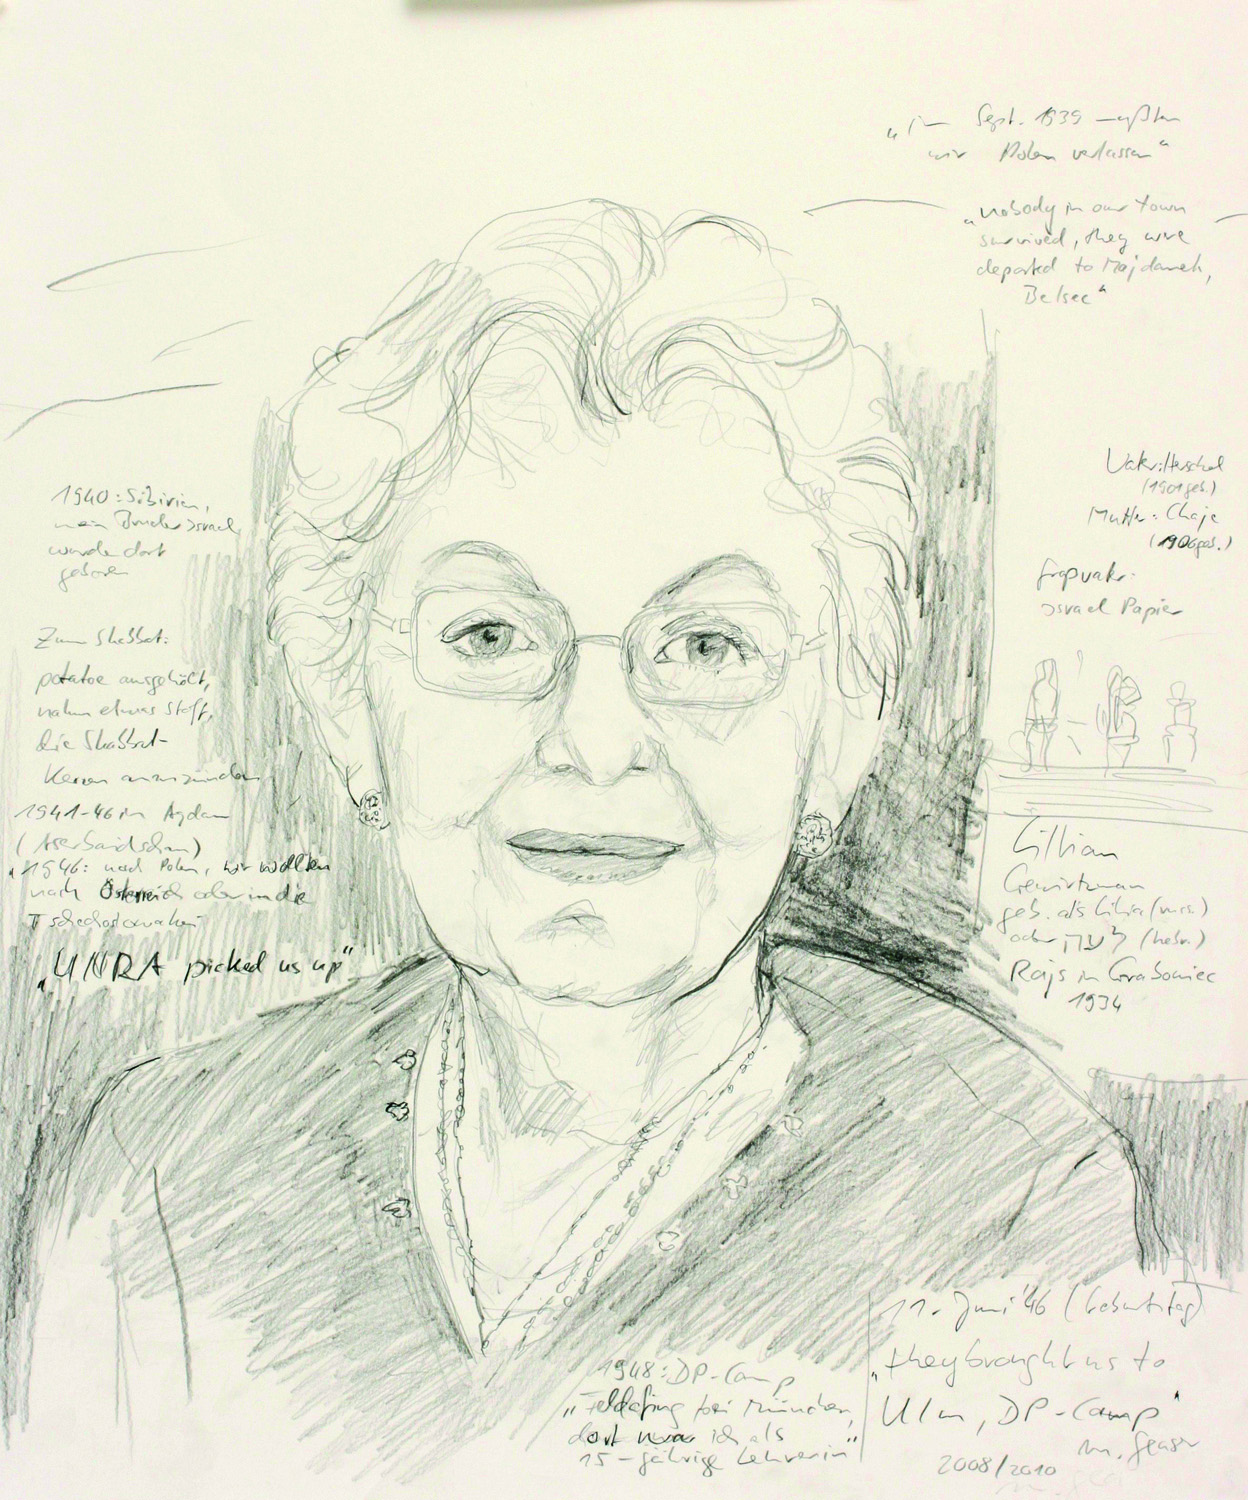 „Im Sept. 1939 mußten
wir Polen verlassen“
„nobody in our town
survived, they were
deported to Majdanek,
Belsec“
Vater: Herschel
(1901 geb.)
Mutter: Chaje
(1906 geb.)
Großvater:
Israel Papier
1940: Sibirien,
mein Bruder Israel
wurde dort
geboren
Zum Shabbat:
potatoe ausgehölt,
nahm etwas Stoff,
die Shabbat-
Kerzen anzuzünden
1941-46 in Agdam
(Aserbaidschan)
„1946: nach Polen, wir wollten
nach Österreich oder in die
Tschechoslowakei
„UNRA picked us up“
Lillian
Gewirtzman
geb. als Lilia (russ.)
oder (hebr.)
Rajs in Grabowiec
1934
11. Juni '46 (Geburtstag)
„they brought us to
Ulm, DP-Camp“
1948: DP-Camp
„Feldafing bei München,
dort war ich als
15-jährige Lehrerin“
2008/2010